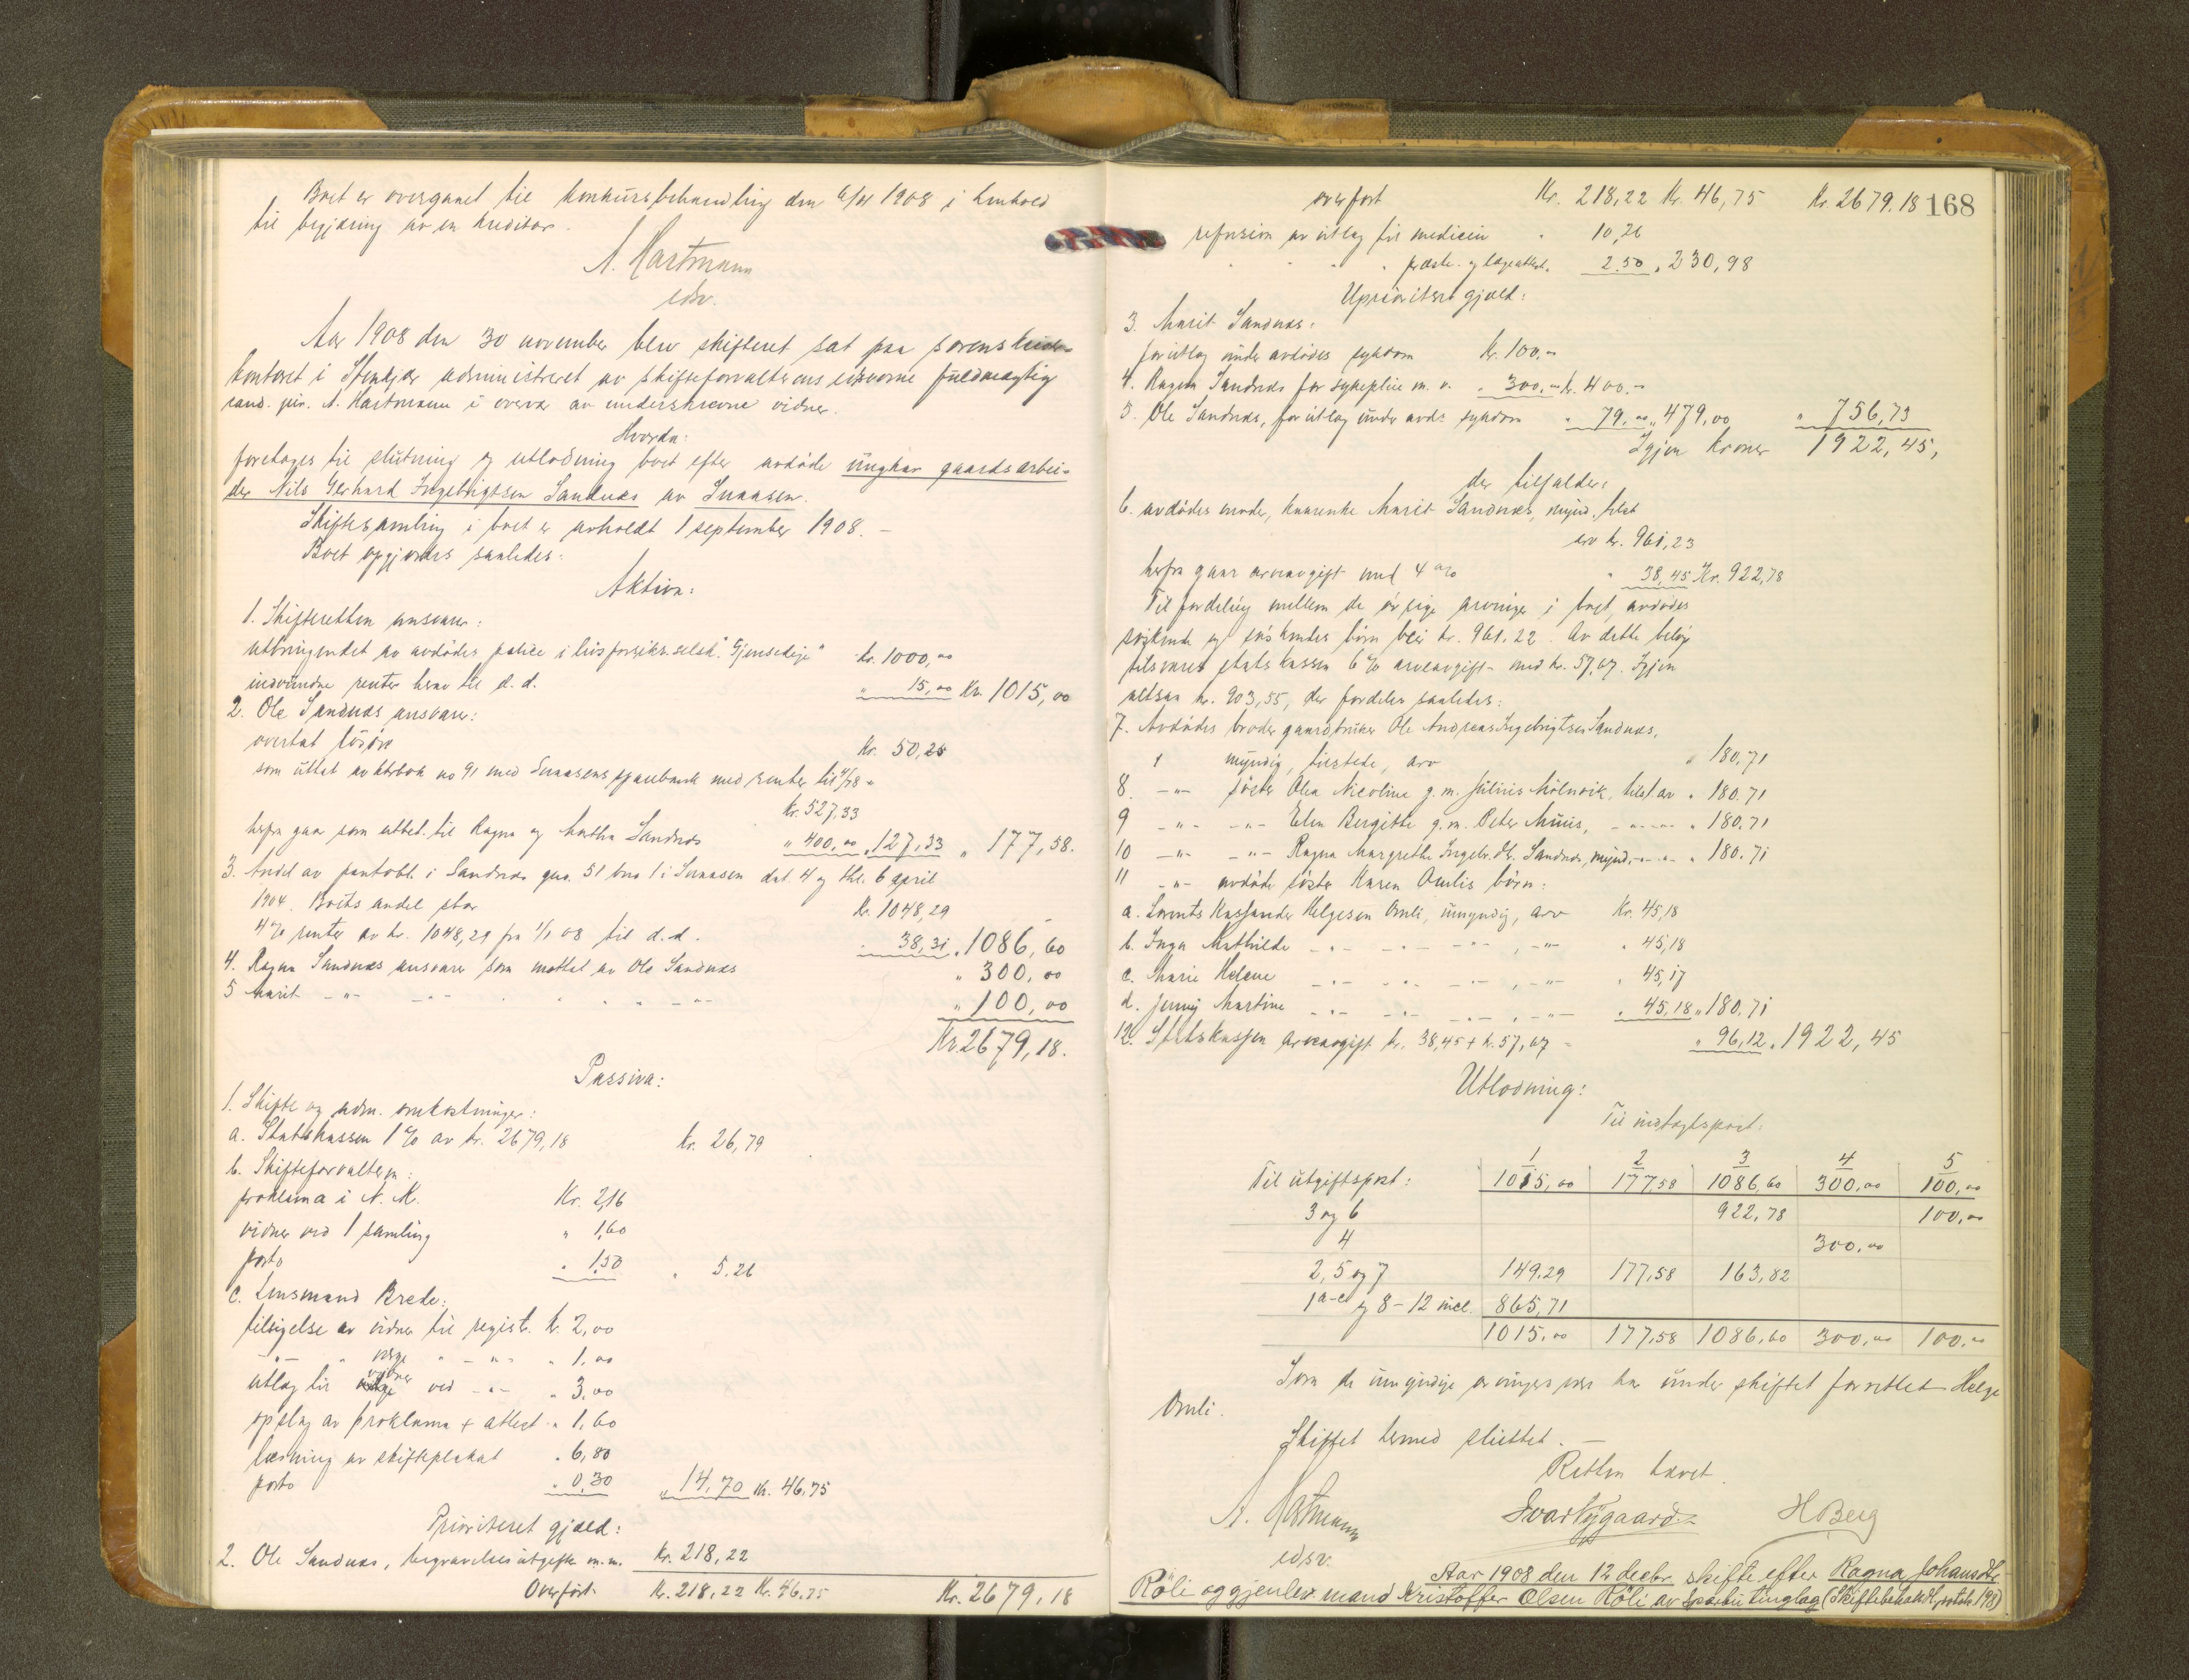 Boet er overgaaet til konkursbehandling den 6/11 1908 i henhold
til begjæring av en kreditor.
A. Hartmann
edsv.
Aar 1908 den 30 november blev skifteret sat paa sorenskriver-
kontoret i Stenkjær administreret av skifteforvalterens edsvorne fuldmægtig
cand. jur. A. Hartmann i overvær av underskrevne vidner.
Hvorda:
foretages til slutning og utlodning boet efter avdøde ungkar gaardsarbei-
der Nils Gerhard Ingebrigtsen Sandnes av Snaasen.
Skiftesamling i boet er avholdt 1 september 1908.-
Boet opgjøres saaledes:
Aktiva:
1. Skifteretten ansvarer:
utbringendet av avdødes police i livsforsikr.selsk. "Gjensidige" kr. 1000,00
indvundne renter herav til d.d. " 15,00 Kr. 1015,00
2. Ole Sandnes ansvarer:
overtat løsøre Kr. 50,25
som uttat av ktrbok no 91 med Snaasens sparebank med renter til
Kr. 527,33
herfra gaar som utbet. til Ragna og Martha Sandnes " 400,00 " 127,33 " 177,58.
3. Andel av pantobl. i Sandnes gno. 51 bno 1 i Snaasen dat. 4 og thl. 6 april
1904. Boets andel stor Kr. 1048,29
4% renter av kr. 1048,29 fra 1/1 08 til d.d. " 38,31 " 1086,60
4. Ragna Sandnes ansvarer som mottat av Ole Sandnes " 300,00
5 Marit -"- -"- " " " -"- " 100,00
Kr. 2679,18.
Passiva:
1. Skifte og adm. omkostninger:
a. Statskassen 1% av kr. 2679,18 kr. 26,79
b. Skifteforvalteren:
proklama i N. K. Kr. 2,16
vidner ved 1 samling " 1,60
porto " 1,50 " 5,26
c. Lensmand Brede:
tilsigelse av vidner til regist. kr. 2,00
-"- " verge " -"- " 1,00
utlæg til vidner ved -"- " 3,00
opslag av proklama + attest " 1,60
læsning av skifteplakat " 6,80
porto " 0,30 " 14,70 Kr. 46,75
Prioriteret gjæld:
2. Ole Sandnes, begravelsesutgifter m.m. Kr. 218,22
Overført Kr. 218,22 Kr. 46,75 Kr. 2679,18
overført Kr. 218,22 Kr. 46,75 Kr. 2679,18 168
refusion av utlæg til medicin " 10,26
" " " præste- og lægeattest " 2,50 " 230,98
Uprioritert gjæld:
3. Marit Sandnes:
for utlæg under avdødes sykdom kr. 100,-
4. Ragna Sandnes for sykepleie m.v. " 300,- kr. 400,-
5. Ole Sandnes, for utlæg under avdø. sykdom " 79,00 " 479,00 " 756,73
Igjen kroner 1922,45,
der tilfalder:
6. avdødes moder, kaarenke Marit Sandnes, mynd. tilst.
arv kr. 961,23
herfra gaar arveavgift med 4% " 38,45 Kr. 922,78
Til fordeling mellem de øvrige arvinger i boet, avdødes
søskende og søskendes børn blir kr. 961.22. Av dette beløp
tilsvares statskassen 6% arveavgift med kr. 57,67. Igjen
altsaa kr. 903,55, der fordeles saaledes:
7. Avdødes broder gaardbruker Ole Andreas Ingebrigtsen Sandnes,
myndig, tilstede, arv " 180,71
8. -"- søster Olea Nicoline g.m. Julius Mølnvik, tilst. arv " 180.71
9 -"- -"- Elen Bergitte g.m. Peter Muus, -"- -"- " 180,71
10 -"- -"- Ragna Margrethe Ingebr.dtr. Sandnes, mynd. -"- -"- " 180.71
11 -"- avdøde søster Karen Omlis børn:
a. Lorents Kassander Helgesen Omli, umyndig, arv Kr. 45,18
b. Inga Mathilde -"- -"- -"-, -"- " 45,18
c. Marie Helene -"- -"- -"-, -"- " 45,17
d. Jenny Martine -"- -"- -"-, -"- " 45,18 " 180.71
12. Statskassen arveavgift kr. 38,45 + kr. 57,67 = " 96,12 " 1922,45
Utlodning:
Til indtægtspost:
Til utgiftspost: 1 2 3 4 5
1015,00 177,58 1086,60 300,00 100,00
3 og 6 922,78 100,00
4 300,00
2, 5 og 7 149.29 177,58 163,82
1 a-c og 8-12 incl. 865,71
1015,00 177,58 1086,60 300,00 100,00
Som de umyndige arvingers verge har under skiftet forrettet Helge
Omli.
Skiftet hermed sluttet.-
Retten hævet.
A. Hartmann
edsv.
Ivar Nygaard H Berg
Aar 1908 den 12 decbr. skifte efter Ragna Johansdtr.
Røli og gjenlev. mand Kristoffer Olsen Røli av Sparbu tinglag (Skiftebehandl. protok. 198)